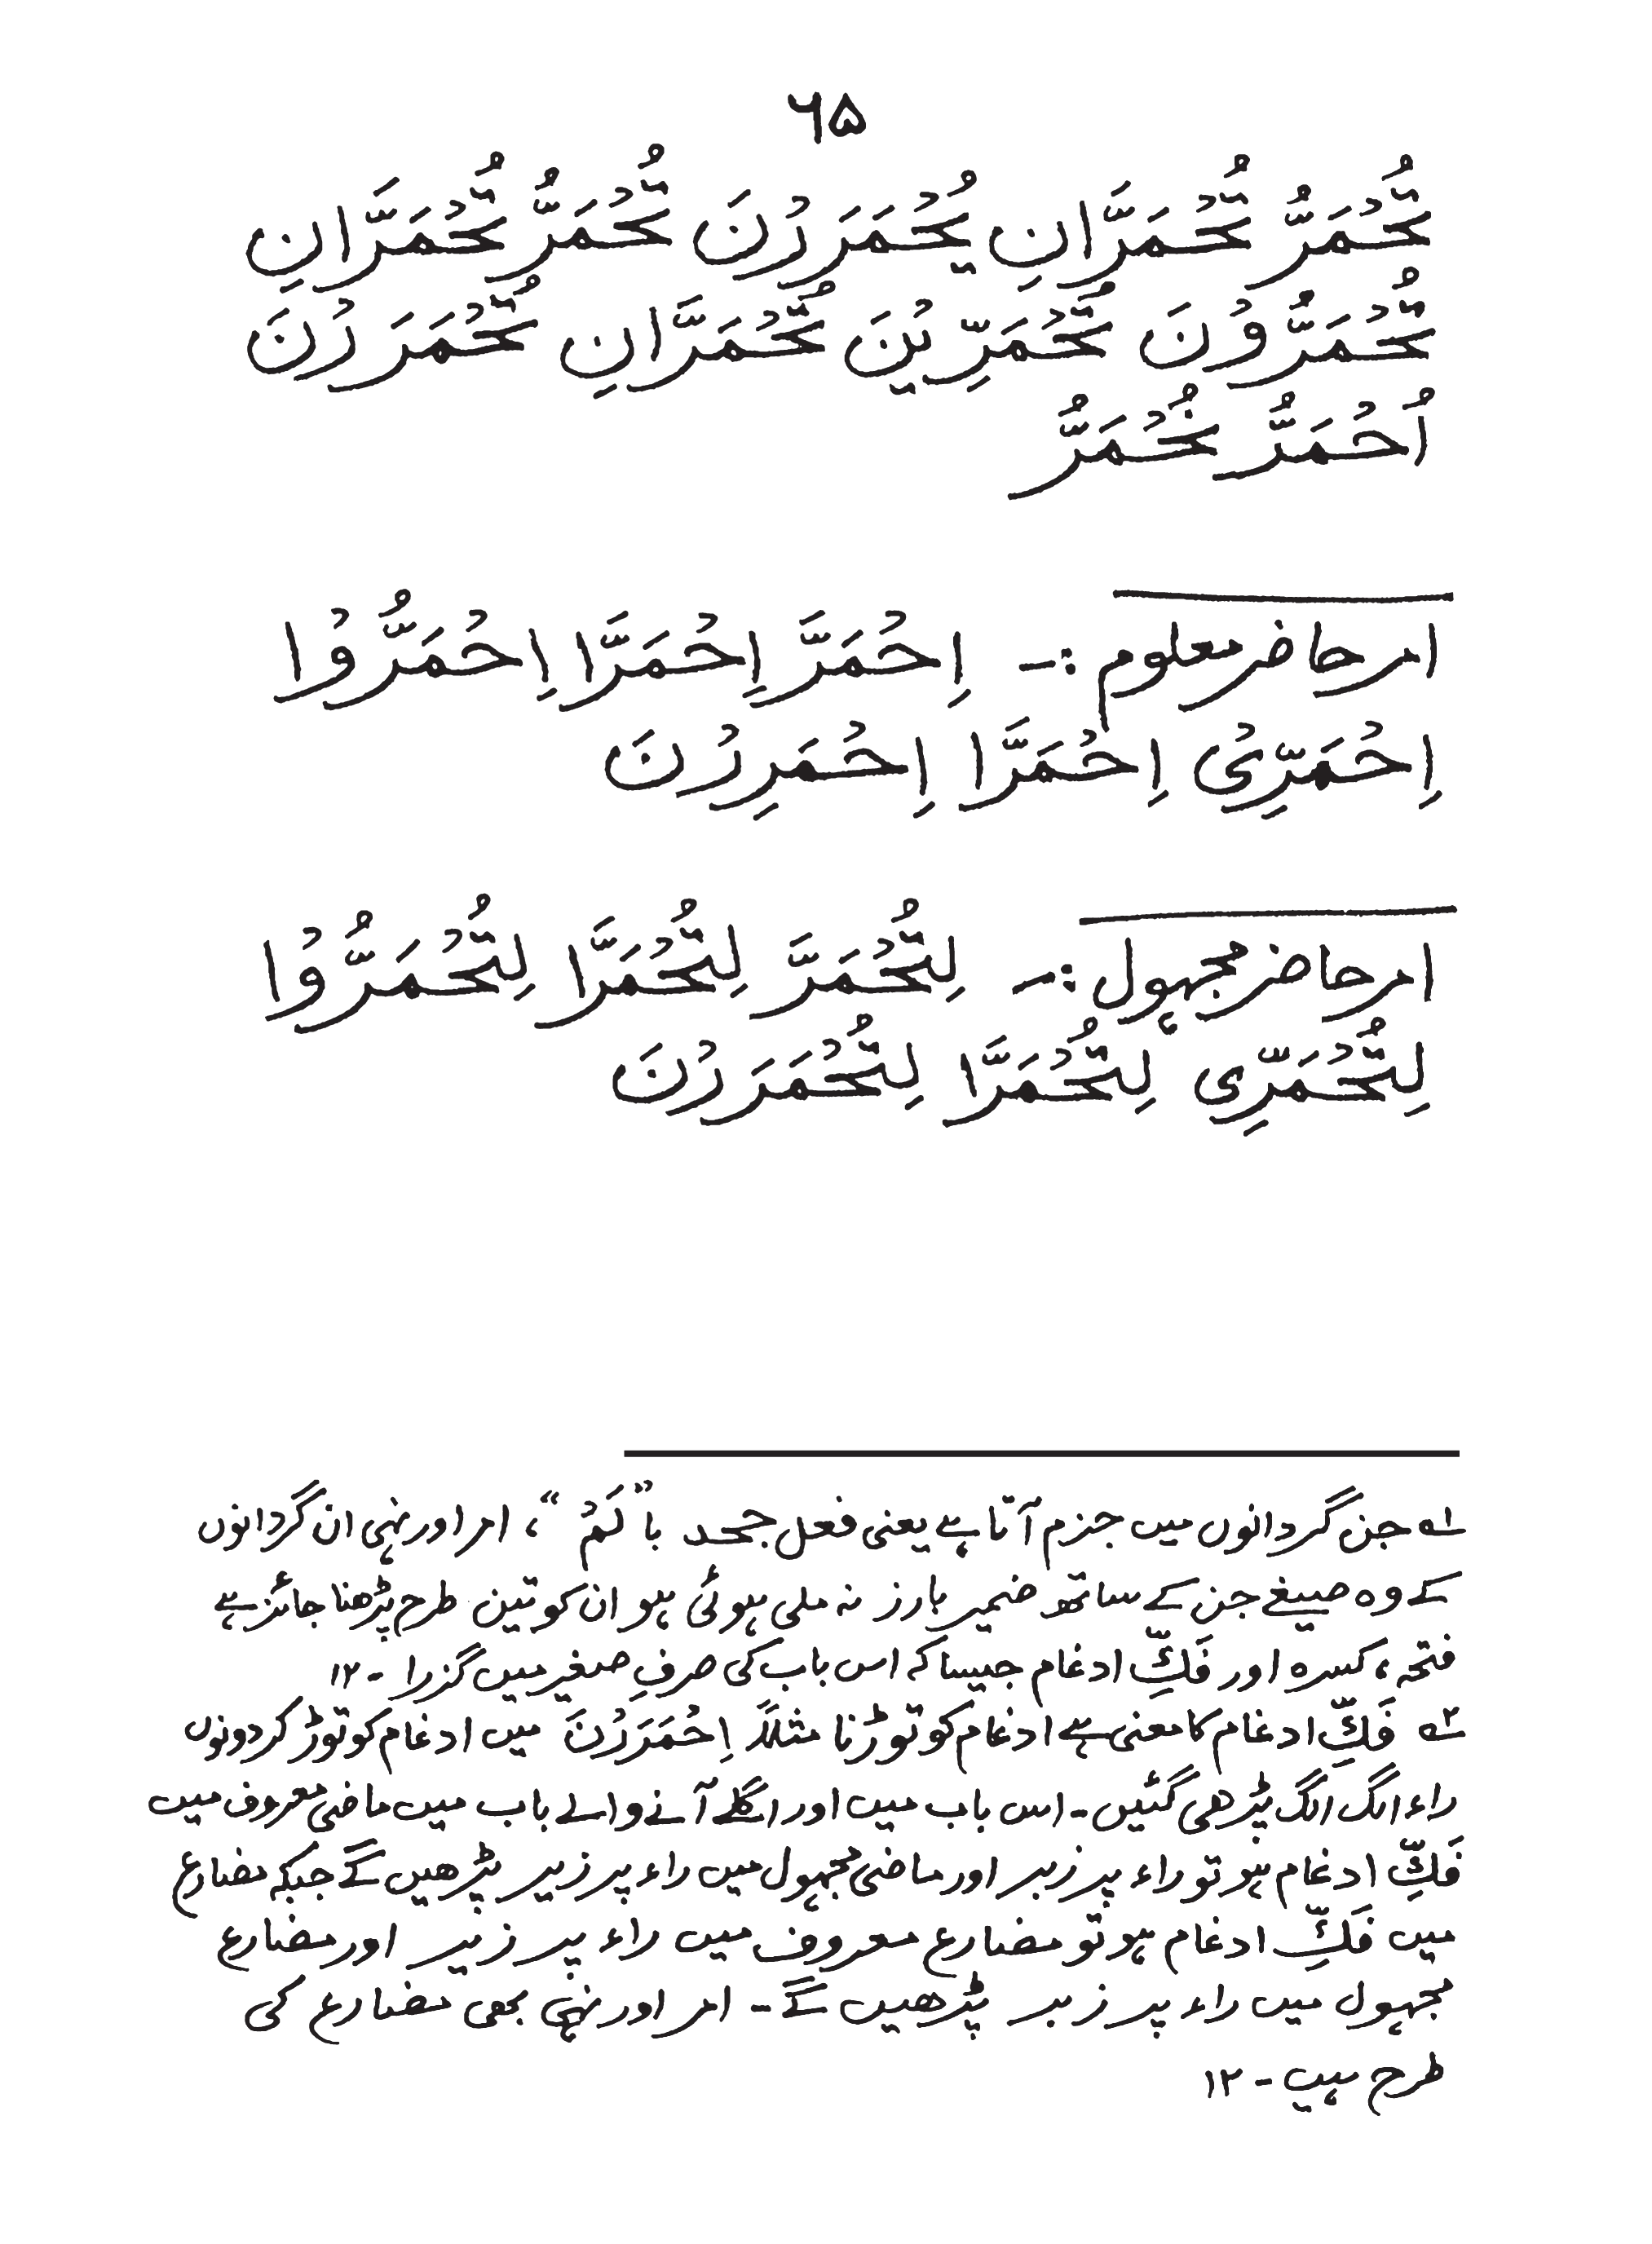 ۶۵
تُحْمَرُّ تُحْمَرَّانِ يُحْمَرَرْنَ تُحْمَرُّ تُحْمَرَّانِ
تُحْمَرُّوْنَ تُحْمَرِّيْنَ تُحْمَرَّانِ تُحْمَرَرْنَ
اُحْمَرُّ نُحْمَرُّ
امر حاضر معلوم :- اِحْمَرَّ اِحْمَرَّا اِحْمَرُّوْا
اِحْمَرِّیْ اِحْمَرَّا اِحْمَرِرْنَ
امر حاضر مجہول :- لِتُحْمَرَّ لِتُحْمَرَّا لِتُحْمَرُّوْا
لِتُحْمَرِّی لِتُحْمَرَّا لِتُحْمَرَرْنَ
۱ جن گردانوں میں جزم آتا ہے یعنی فعل جحد با "لَمْ"، امر اور نہی ان گردانوں
کے وہ صیغے جن کے ساتھ ضمیر بارز نہ ملی ہوئی ہو ان کو تین طرح پڑھنا جائز ہے
فتحہ، کسرہ اور فَکِّ ادغام جیسا کہ اس باب کی صرفِ صغیر میں گزرا - ۱۲
۲ فَکِّ ادغام کا معنی ہے ادغام کو توڑنا مثلاً اِحْمَرَرْنَ میں ادغام کو توڑ کر دونوں
راء الگ الگ پڑھی گئیں - اس باب میں اور اگلے آنے والے باب میں ماضی معروف میں
فَکِّ ادغام ہو تو راء پر زبر اور ماضی مجہول میں راء پر زیر پڑھیں گے جبکہ مضارع
میں فَکِّ ادغام ہو تو مضارع معروف میں راء پر زیر اور مضارع
مجہول میں راء پر زبر پڑھیں گے - امر اور نہی بھی مضارع کی
طرح ہیں - ۱۲